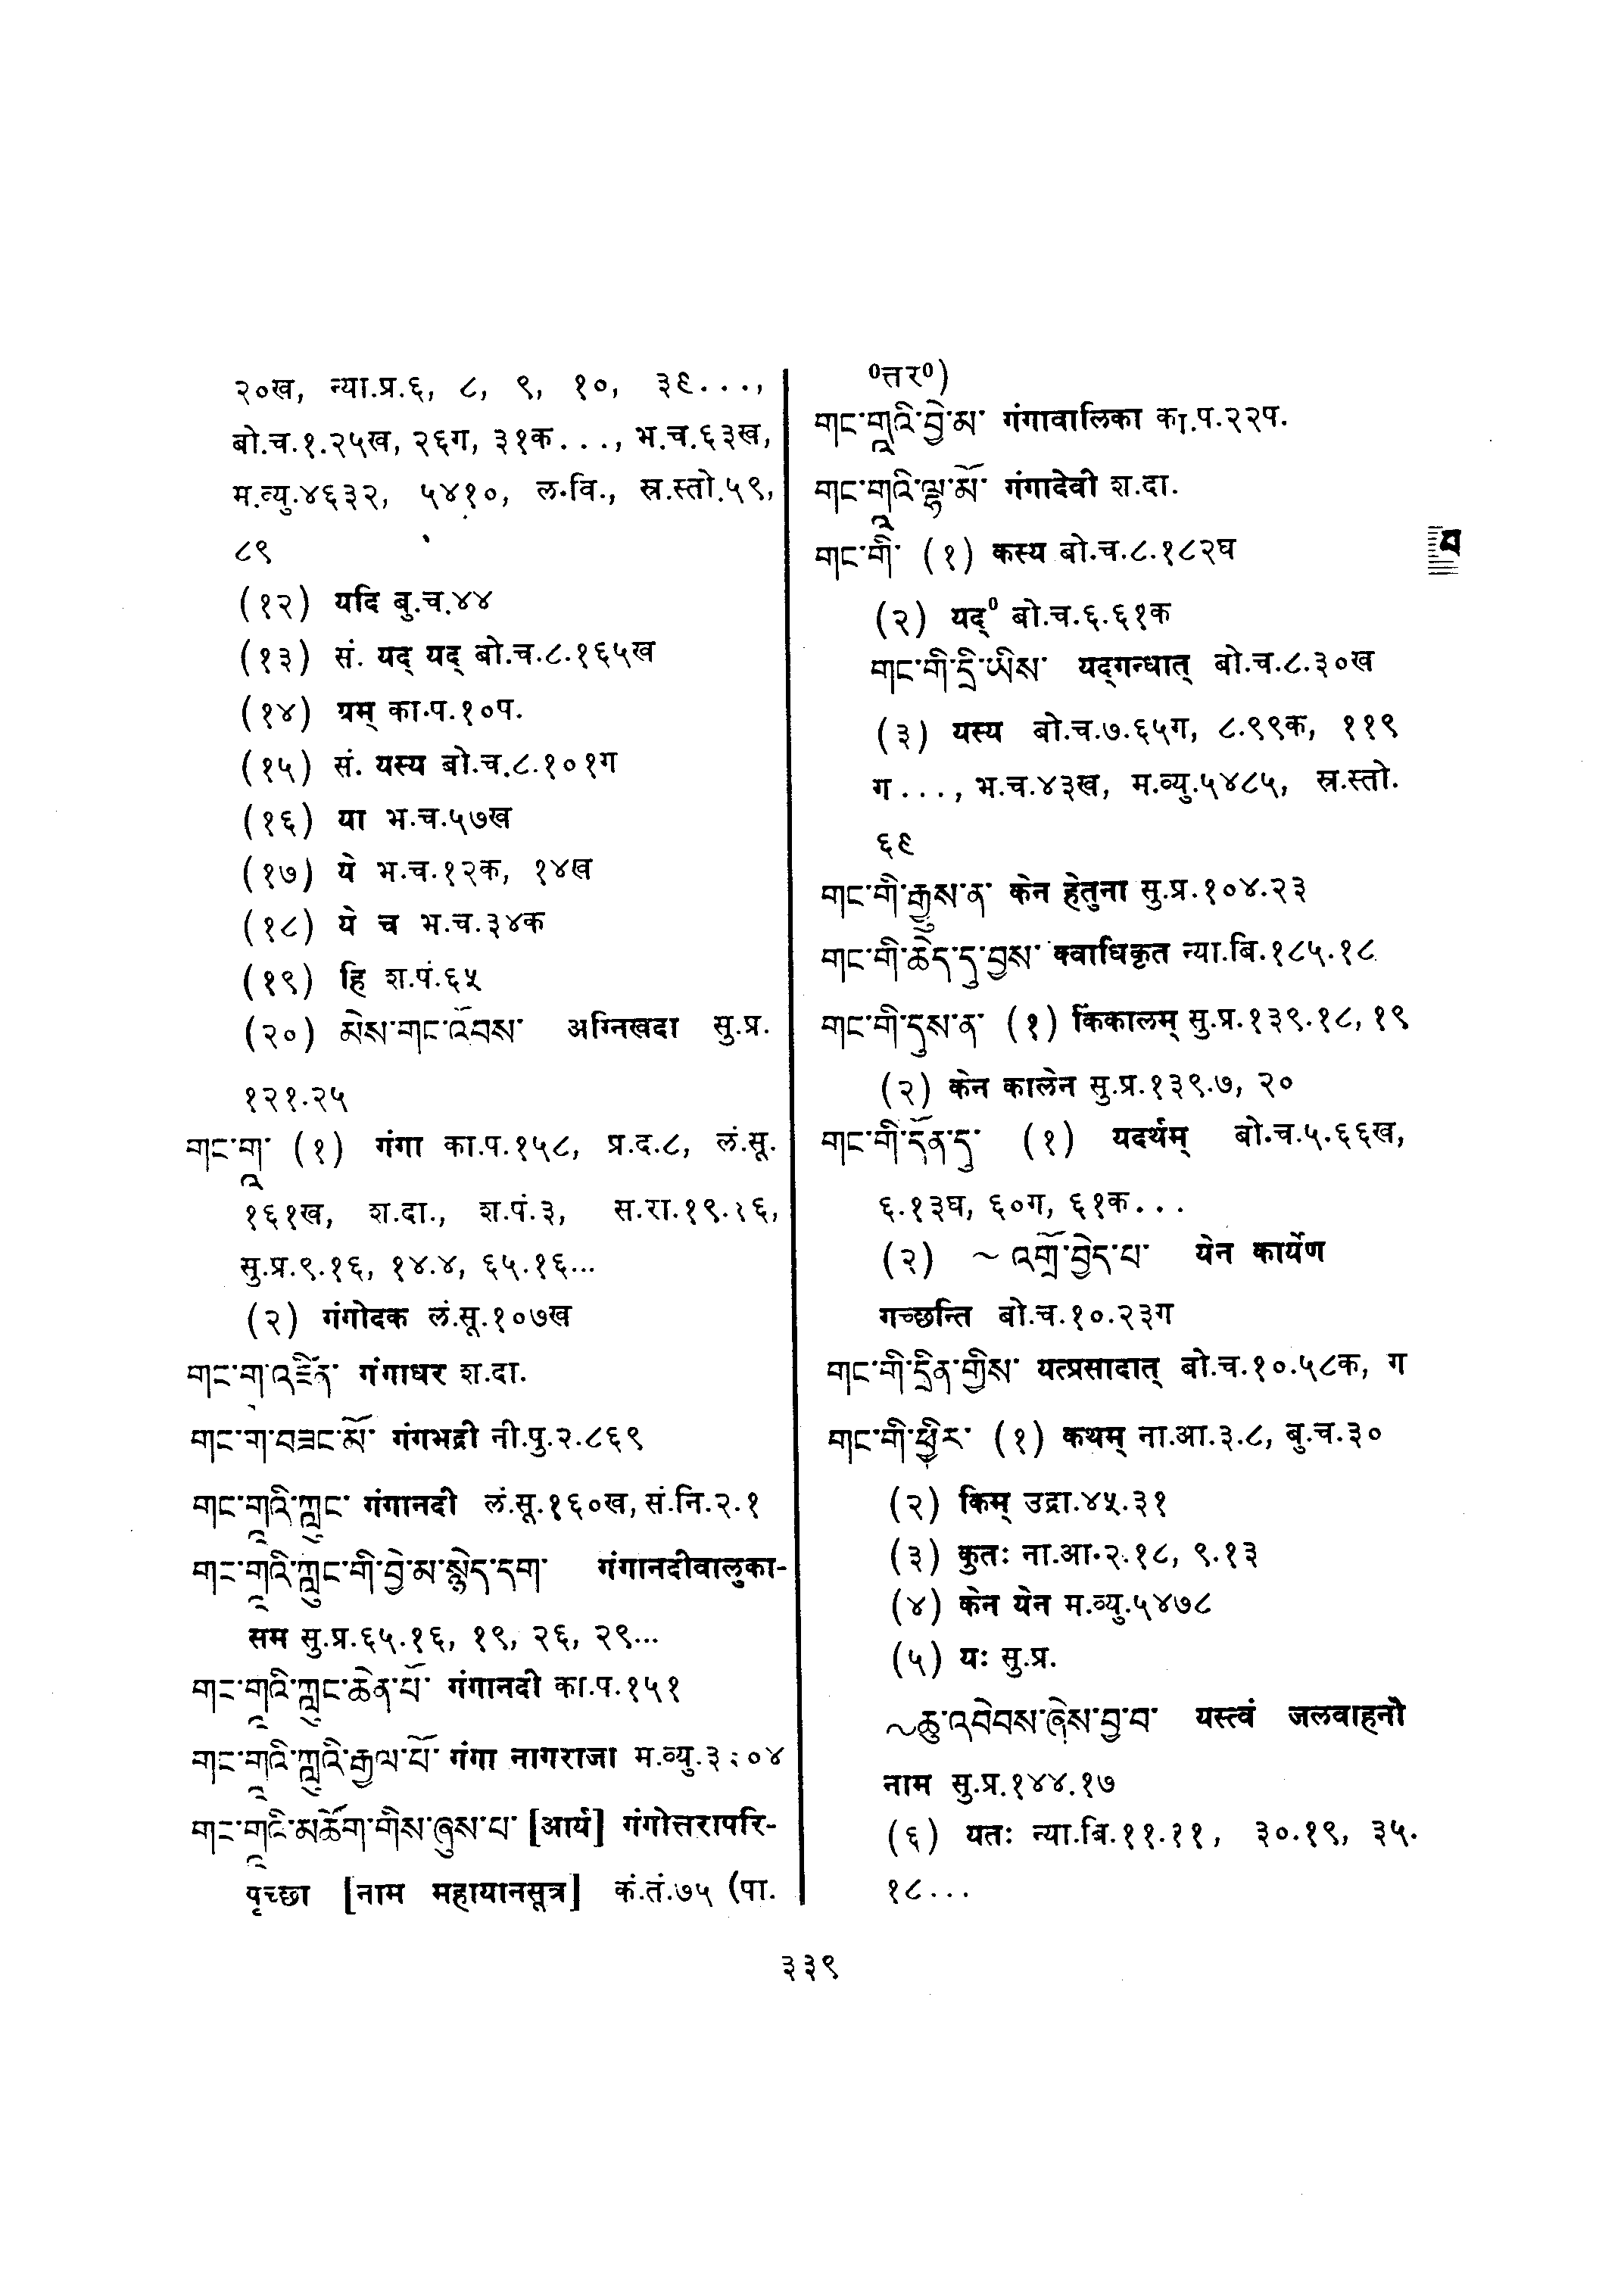 २०ख, न्या.प्र.६, ८, ९, १०, ३९...,
बो.च.१.२५ख, २६ग, ३१क..., भ.च.६३ख,
म.व्यु.४६३२, ५४१०, ल.वि., स्र.स्तो.५९,
८९
(१२) यदि बु.च.४४
(१३) सं. यद् यद् बो.च.८.१६५ख
(१४) यम् का.प.१०प.
(१५) सं. यस्य बो.च.८.१०१ग
(१६) या भ.च.५७ख
(१७) ये भ.च.१२क, १४ख
(१८) ये च भ.च.३४क
(१९) हि श.पं.६५
(२०) མེས་གང་འོབས་ अग्निखदा सु.प्र.
१२१.२५
གང་གཱ་ (१) गंगा का.प.१५८, प्र.द.८, लं.सू.
१६१ख, श.दा., श.पं.३, स.रा.१९.१६,
सु.प्र.९.१६, १४.४, ६५.१६...
(२) गंगोदक लं.सू.१०७ख
གང་ག་འཛིན་ गंगाधर श.दा.
གང་ག་བཟང་མོ་ गंगभद्री नी.पु.२.८६९
གང་གཱའི་ཀླུང་ गंगानदी लं.सू.१६०ख, सं.नि.२.१
གང་གཱའི་ཀླུང་གི་བྱེ་མ་སྙེད་དག་ गंगानदीवालुका-
सम सु.प्र.६५.१६, १९, २६, २९...
གང་གཱའི་ཀླུང་ཆེན་པོ་ गंगानदी का.प.१५१
གང་གཱའི་ཀླུའི་རྒྱལ་པོ་ गंगा नागराजा म.व्यु.३३०४
གང་གཱའི་མཆོག་གིས་ཞུས་པ་ [आर्य] गंगोत्तरापरि-
पृच्छा [नाम महायानसूत्र] कं.तं.७५ (पा.
⁰त्तर⁰)
གང་གཱའི་བྱེ་མ་ गंगावालिका का.प.२२प.
གང་གཱའི་ལྷ་མོ་ गंगादेवी श.दा.
གང་གི་ (१) कस्य बो.च.८.१८२घ
(२) यद्⁰ बो.च.६.६१क
གང་གི་དྲི་ཡིས་ यद्गन्धात् बो.च.८.३०ख
(३) यस्य बो.च.७.६५ग, ८.९९क, ११९
ग..., भ.च.४३ख, म.व्यु.५४८५, स्र.स्तो.
६९
གང་གི་རྒྱུས་ན་ केन हेतुना सु.प्र.१०४.२३
གང་གི་ཆེད་དུ་བྱས་ क्वाधिकृत न्या.बि.१८५.१८
གང་གི་དུས་ན་ (१) किंकालम् सु.प्र.१३९.१८, १९
(२) केन कालेन सु.प्र.१३९.७, २०
གང་གི་དོན་དུ་ (१) यदर्थम् बो.च.५.६६ख,
६.१३घ, ६०ग, ६१क...
(२) ~འགྲོ་བྱེད་པ་ येन कार्येण
गच्छन्ति बो.च.१०.२३ग
གང་གི་དྲིན་གྱིས་ यत्प्रसादात् बो.च.१०.५८क, ग
གང་གི་ཕྱིར་ (१) कथम् ना.आ.३.८, बु.च.३०
(२) किम् उद्रा.४५.३१
(३) कुतः ना.आ.२.१८, ९.१३
(४) केन येन म.व्यु.५४७८
(५) यः सु.प्र.
~ཆུ་འབེབས་ཞེས་བྱ་བ་ यस्त्वं जलवाहनो
नाम सु.प्र.१४४.१७
(६) यतः न्या.बि.११.११, ३०.१९, ३५.
१८...
३३९